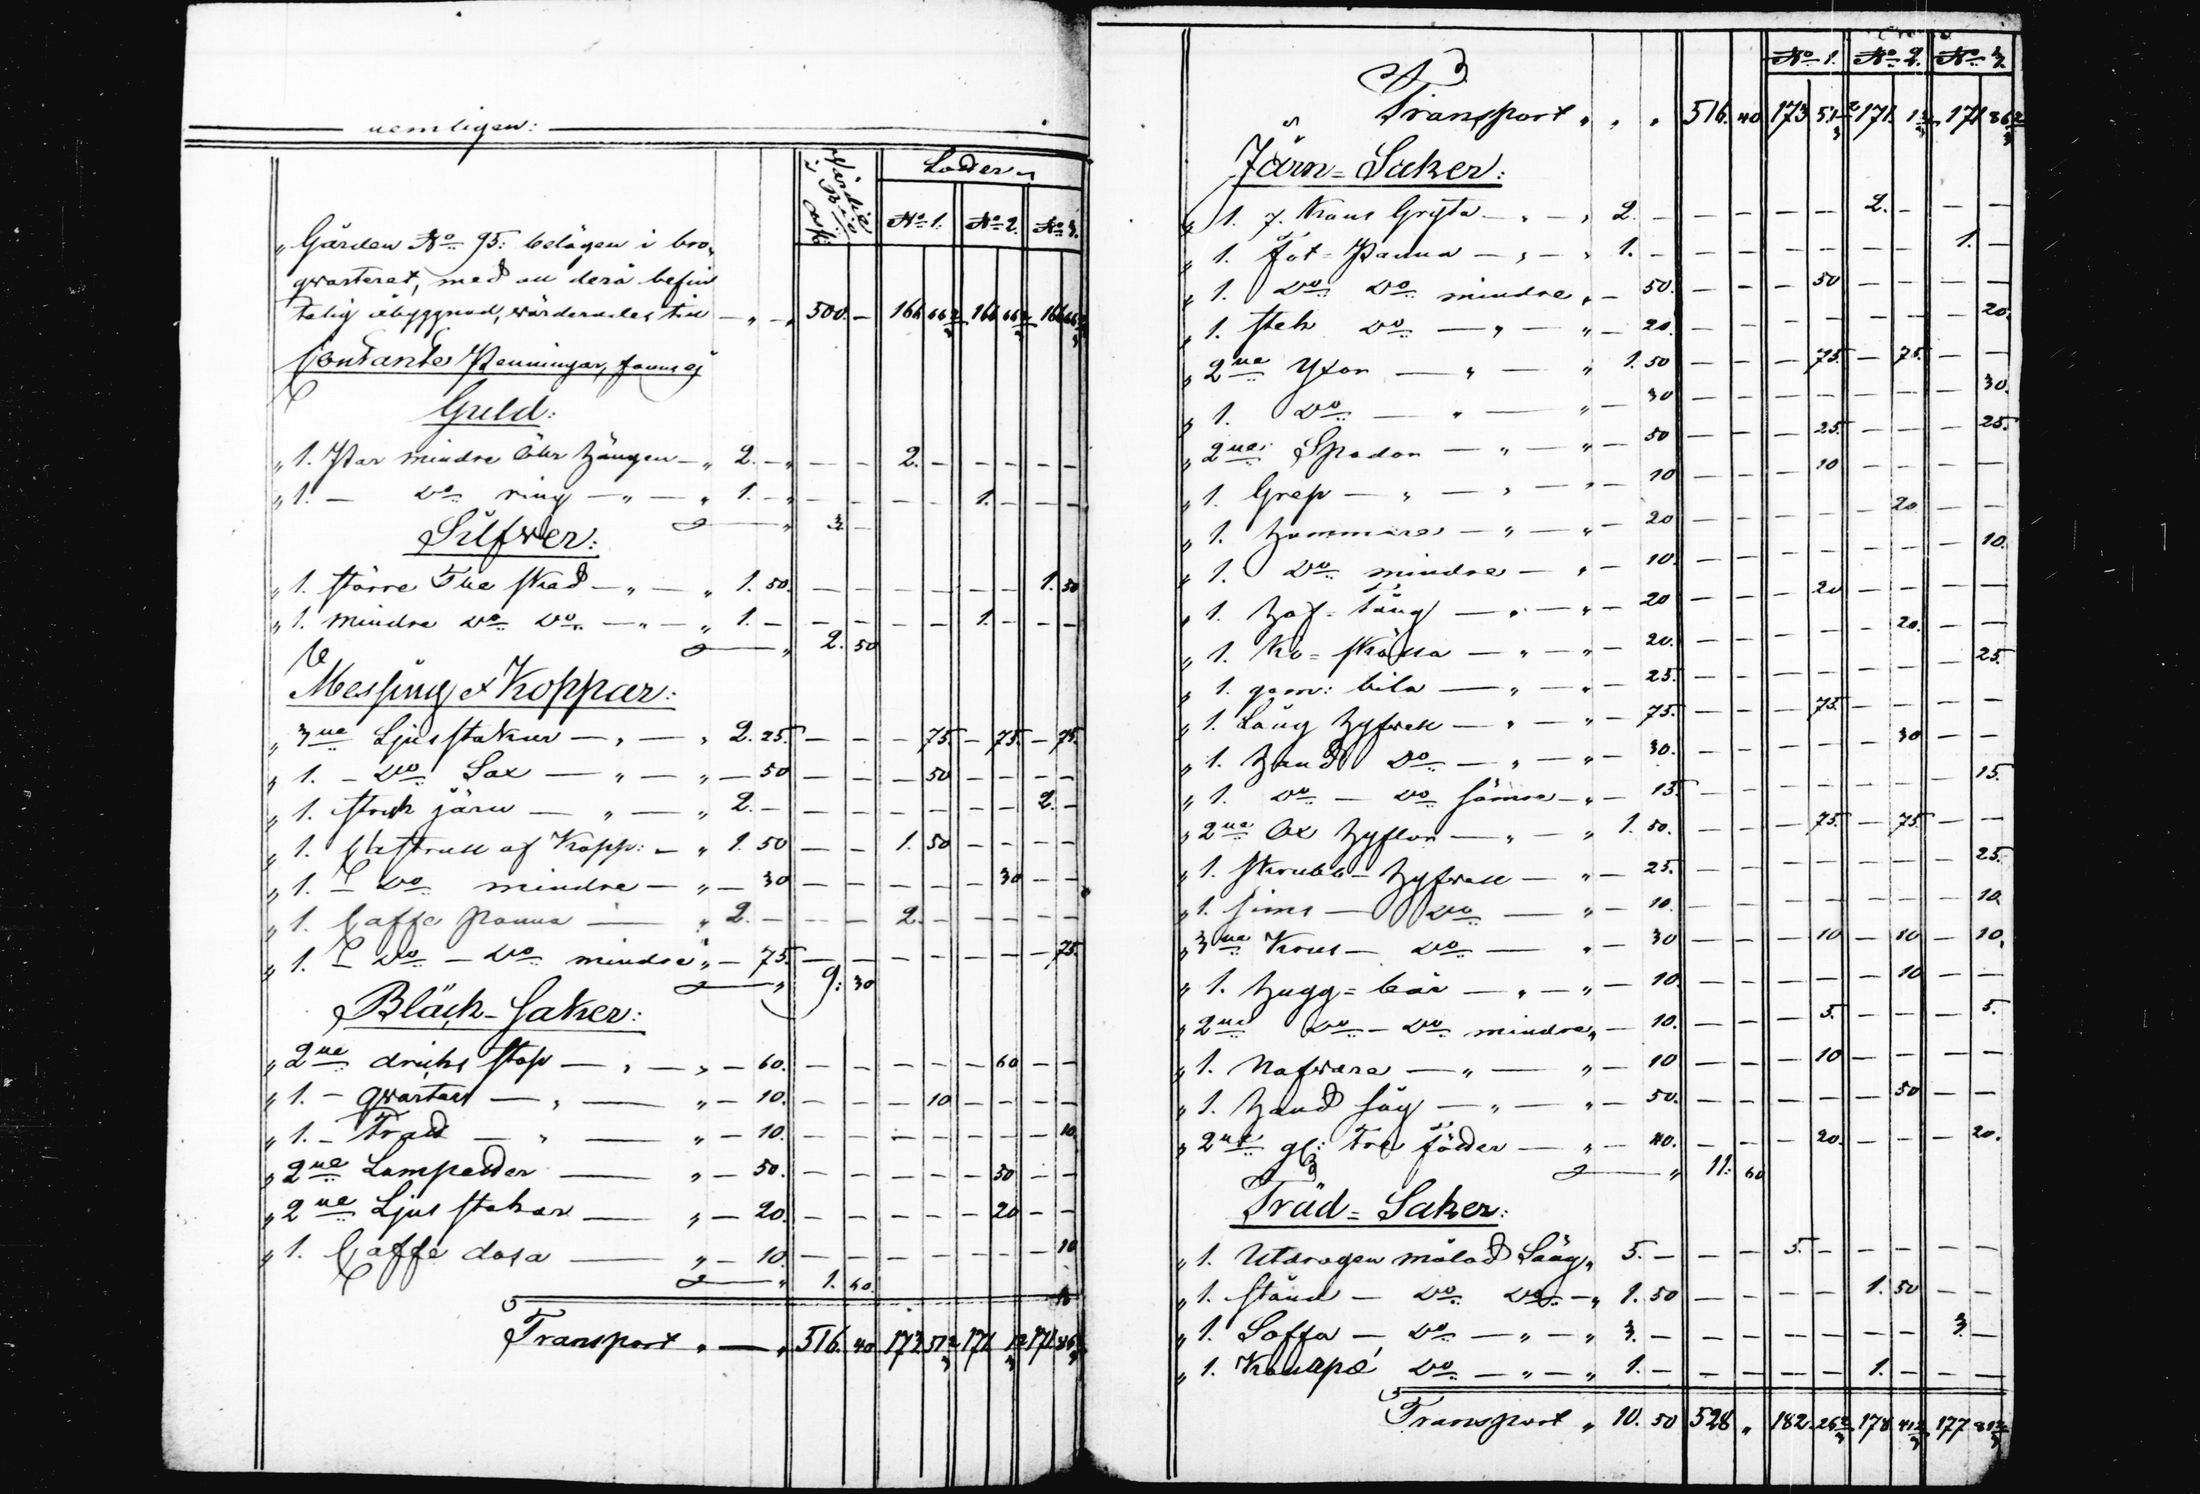 nemligen:
Wärdie i Rd Rmt
Lodder
No 1. No 2. No 3.
" Gården No 95: belägen i bro-
qvarteret, med all derå befin
telig åbyggnad, wärderades till — " — " 500. — 166 66 2/3 166 66 2/3 166 66 2/3
Contante Penningar, fanns ej
Guld:
" 1. Par mindre Öhr hängen — " 2. — " — — 2. — — — — —
" 1. — do ring — " — " 1. — " — — — — 1. — — —
" 3. —
Silfwer:
" 1. större The sked — " — " 1. 50. — — — — — — 1. 50
" 1. mindre do do — " — " 1. — — — — — 1. — — —
" 2. 50
Messing & Koppar:
" 3ne Ljusstakur — " — " 2. 25. — — — 75. — 75. — 75.
" 1. — do Sax — " — " — 50 — — — 50 — — — —
" 1. stryk järn — " — " 2. — — — — — — — 2. —
" 1. Castrull af Kopp: — " 1. 50 — — 1. 50 — — — —
" 1. — do mindre — " — 30 — — — — — 30 — —
" 1. Caffe panna — " 2. — — — 2. — — — — —
" 1. — do — do mindre " — 75. — — — — — — — 75.
" 9: 30
Bläck-Saker:
" 2ne dricks stop — " — " — 60. — — — — — 60 — —
" 1. — qwarter — " — " — 10. — — — 10 — — — —
" 1. — Tratt — " — " — 10. — — — — — — — 10
" 2ne Lampetter — " — 50. — — — — — 50 — —
" 2ne Ljus stakar — " — 20. — — — — — 20 — —
" 1. Caffe dosa — " — 10. — — — — — — — 10
" 1. 60.
Transport " — " 516. 40 173 51 2/3 171 1 2/3 171 86 2/3
No 1. No 2. No 3.
Transport " " " 516. 40 173 51 2/3 171. 1 2/3 171 86 2/3
Järn-Saker:
" 1. 7. Kans Gryta — " — " 2. — — — — — 2. — — —
" 1. fot-Panna — " — " 1. — — — — — — — 1. —
" 1. do do mindre " — 50. — — — 50 — — — —
" 1. stek do — " — " — 20. — — — — — — — 20.
" 2ne Yxor — " — " 1. 50 — — — 75. — 75. — —
" 1. do — " — " — 30 — — — — — — — 30.
" 2ne Spadar — " — " — 50 — — — 25. — — — 25.
" 1. Grep — " — " — " — 10 — — — 10 — — — —
" 1. hammare — " — " — 20 — — — — — 20. — —
" 1. do mindre — " — 10. — — — — — — — 10.
" 1. hof-tång — " — " — 20 — — — 20 — — — —
" 1. Ko-skälla — " — " — 20. — — — — — 20. — —
" 1. gam: bila — " — " — 25. — — — — — — — 25.
" 1. Lång hyfvell — " — " — 75. — — — 75. — — — —
" 1. hand do — " — " — 30. — — — — — 30 — —
" 1. do — do sämre — " — 15. — — — — — — — 15.
" 2ne Ox hyflar — " — " 1. 50. — — — 75. — 75. — —
" 1. skrubb-hyfvell — " — 25. — — — — — — — 25.
" 1. sims — do — " — 10. — — — — — — — 10
" 3ne Krus — do — " — 30 — — — 10 — 10 — 10.
" 1. hugg-bår — " — " — 10. — — — — — 10 — —
" 2ne do — do mindre " — 10. — — — 5. — — — 5.
" 1. Nafvare — " — " — 10 — — — 10 — — — —
" 1. hand såg — " — " — 50. — — — — — 50 — —
" 2ne gl: Tre fötter — " — 40. — — — 20. — — — 20.
" 11: 60
Träd-Saker:
" 1. Utdragen målad Säng " 5. — — — 5. — — — — —
" 1. ställ — do do — " 1. 50 — — — — 1. 50 — —
" 1. Soffa — do — " — " 3. — — — — — — — 3. —
" 1. Kanapé do — " — " 1. — — — — — 1. — — —
Transport " 10. 50 528 " 182. 26 2/3 178 41 2/3 177 81 2/3